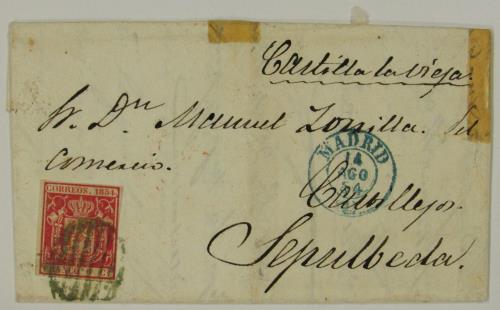 Castilla la vieja
Sr. Dn. Manuel Zorrilla. Del
Comercio.
MADRID
14
AGO
54
CORREOS. 1854.
Castillejo.
Sepulbeda.